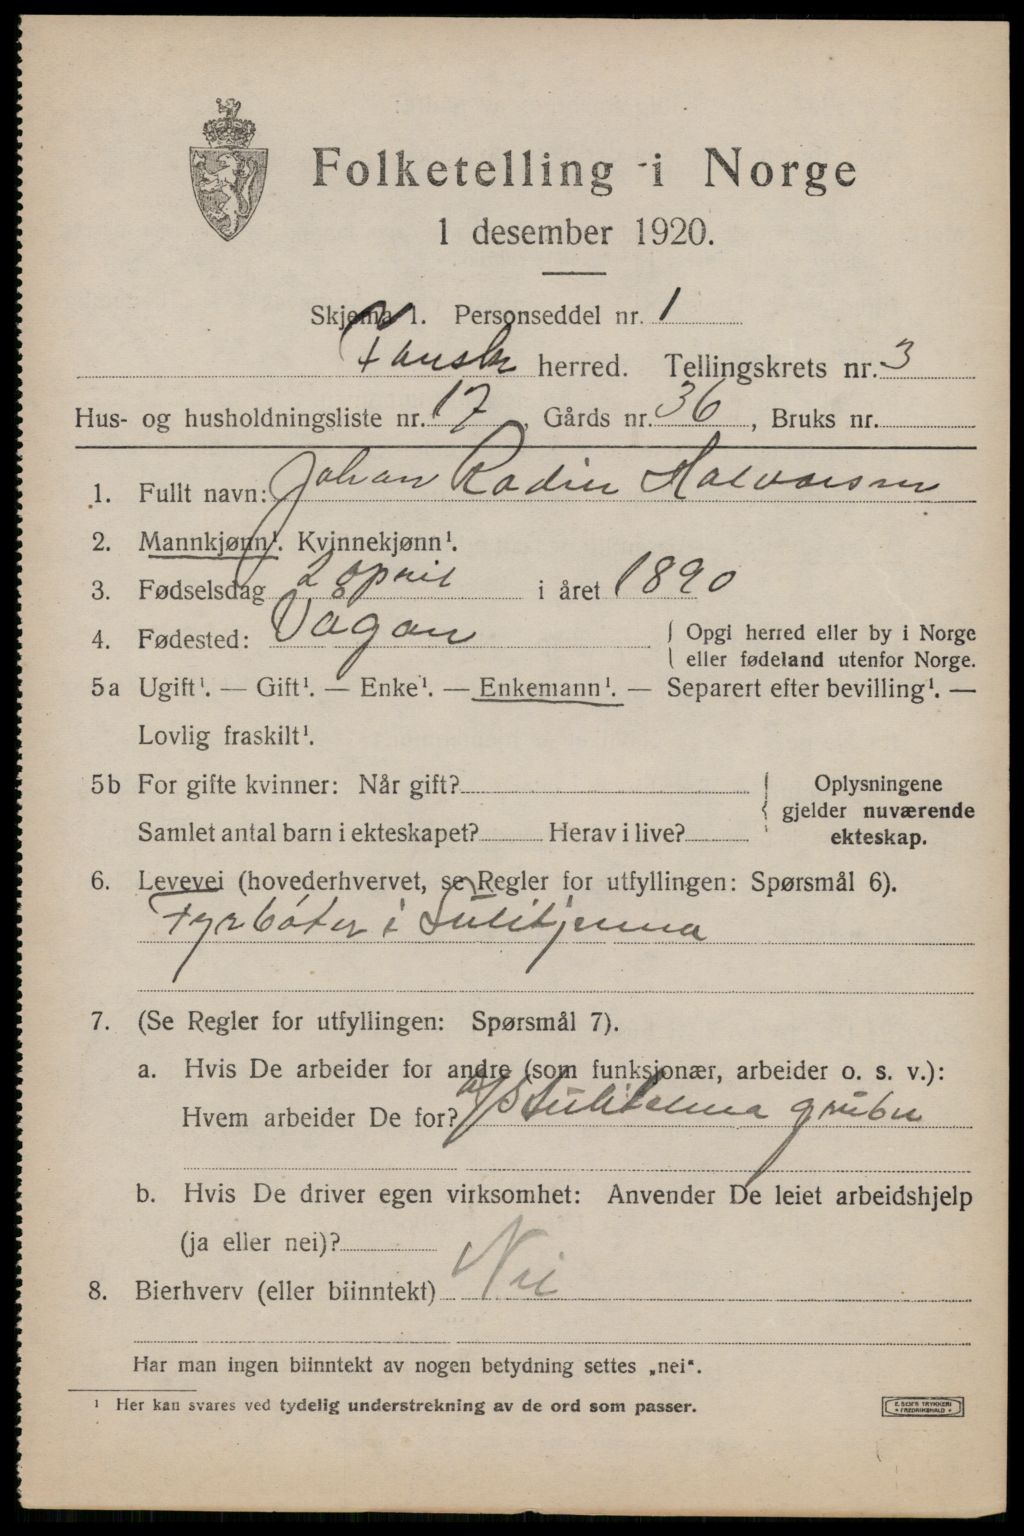 Folketelling i Norge
1 desember 1920.
Skjema 1. Personseddel nr. 1
Fauske herred. Tellingskrets nr. 3
Hus- og husholdningsliste nr. 17, Gårds nr. 36, Bruks nr.
1. Fullt navn: Johan Rodin Halvorsen
2. Mannkjønn¹. Kvinnekjønn¹.
3. Fødselsdag 2 april i året 1890
4. Fødested: Vågan { Opgi herred eller by i Norge
eller fødeland utenfor Norge.
5a Ugift¹. — Gift¹. — Enke¹. — Enkemann¹. — Separert efter bevilling¹. —
Lovlig fraskilt¹.
5b For gifte kvinner: Når gift?
Samlet antal barn i ekteskapet? Herav i live?
{ Oplysningene
gjelder nuværende
ekteskap.
6. Levevei (hovederhvervet, se Regler for utfyllingen: Spørsmål 6).
Fyrbøter i Sulitjelma
7. (Se Regler for utfyllingen: Spørsmål 7).
a. Hvis De arbeider for andre (som funksjonær, arbeider o. s. v.):
Hvem arbeider De for? A/S Sulitelma gruber
b. Hvis De driver egen virksomhet: Anvender De leiet arbeidshjelp
(ja eller nei)?
8. Bierhverv (eller biinntekt) Nei
Har man ingen biinntekt av nogen betydning settes „nei“.
¹ Her kan svares ved tydelig understrekning av de ord som passer.
E. SEM'S TRYKKERI
FREDRIKSHALD